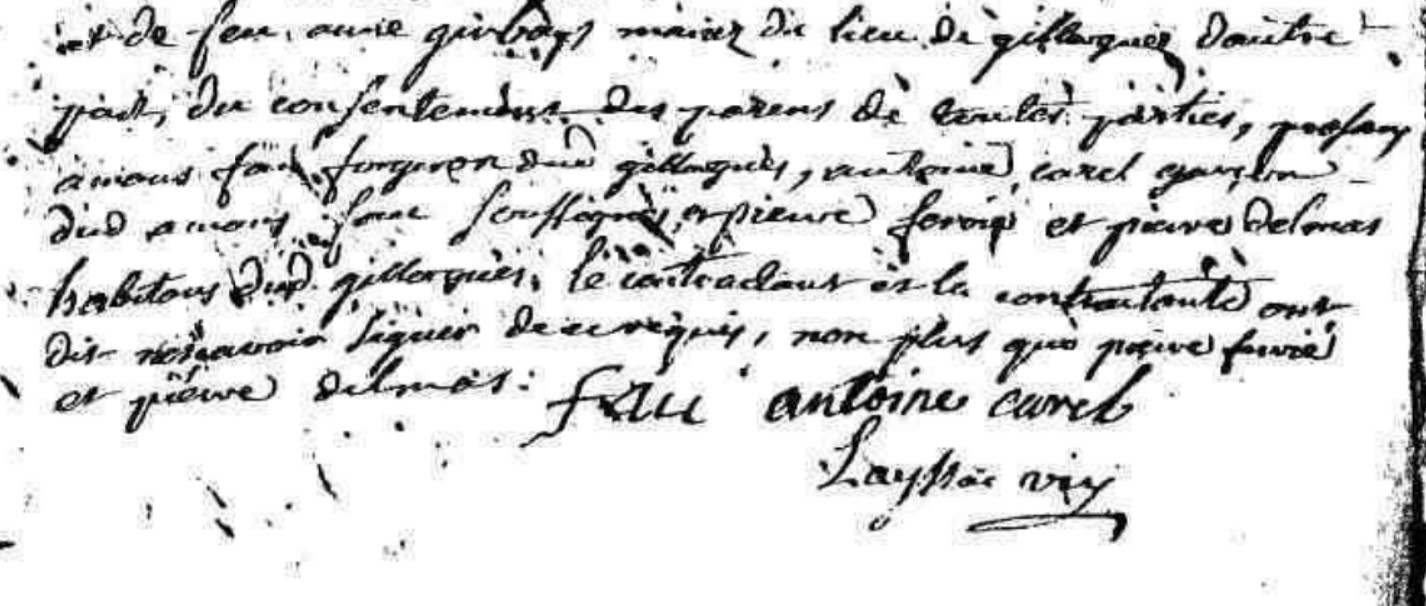 et de feu anne girbays mariez du lieu de gillorgues d'autre
part, du consentement des parens de toutes parties, presans
amans fau forgeron dud gillorgues, antoine carel garçon
dud amans fau soussignés, et pierre et pierre delmas
habitans dud. gillorgues, le contractant et la contractante ont
dit ne scavoir signer de ce requis, non plus que pierre
et pierre delmas :
fau antoine carel
Layssac vic